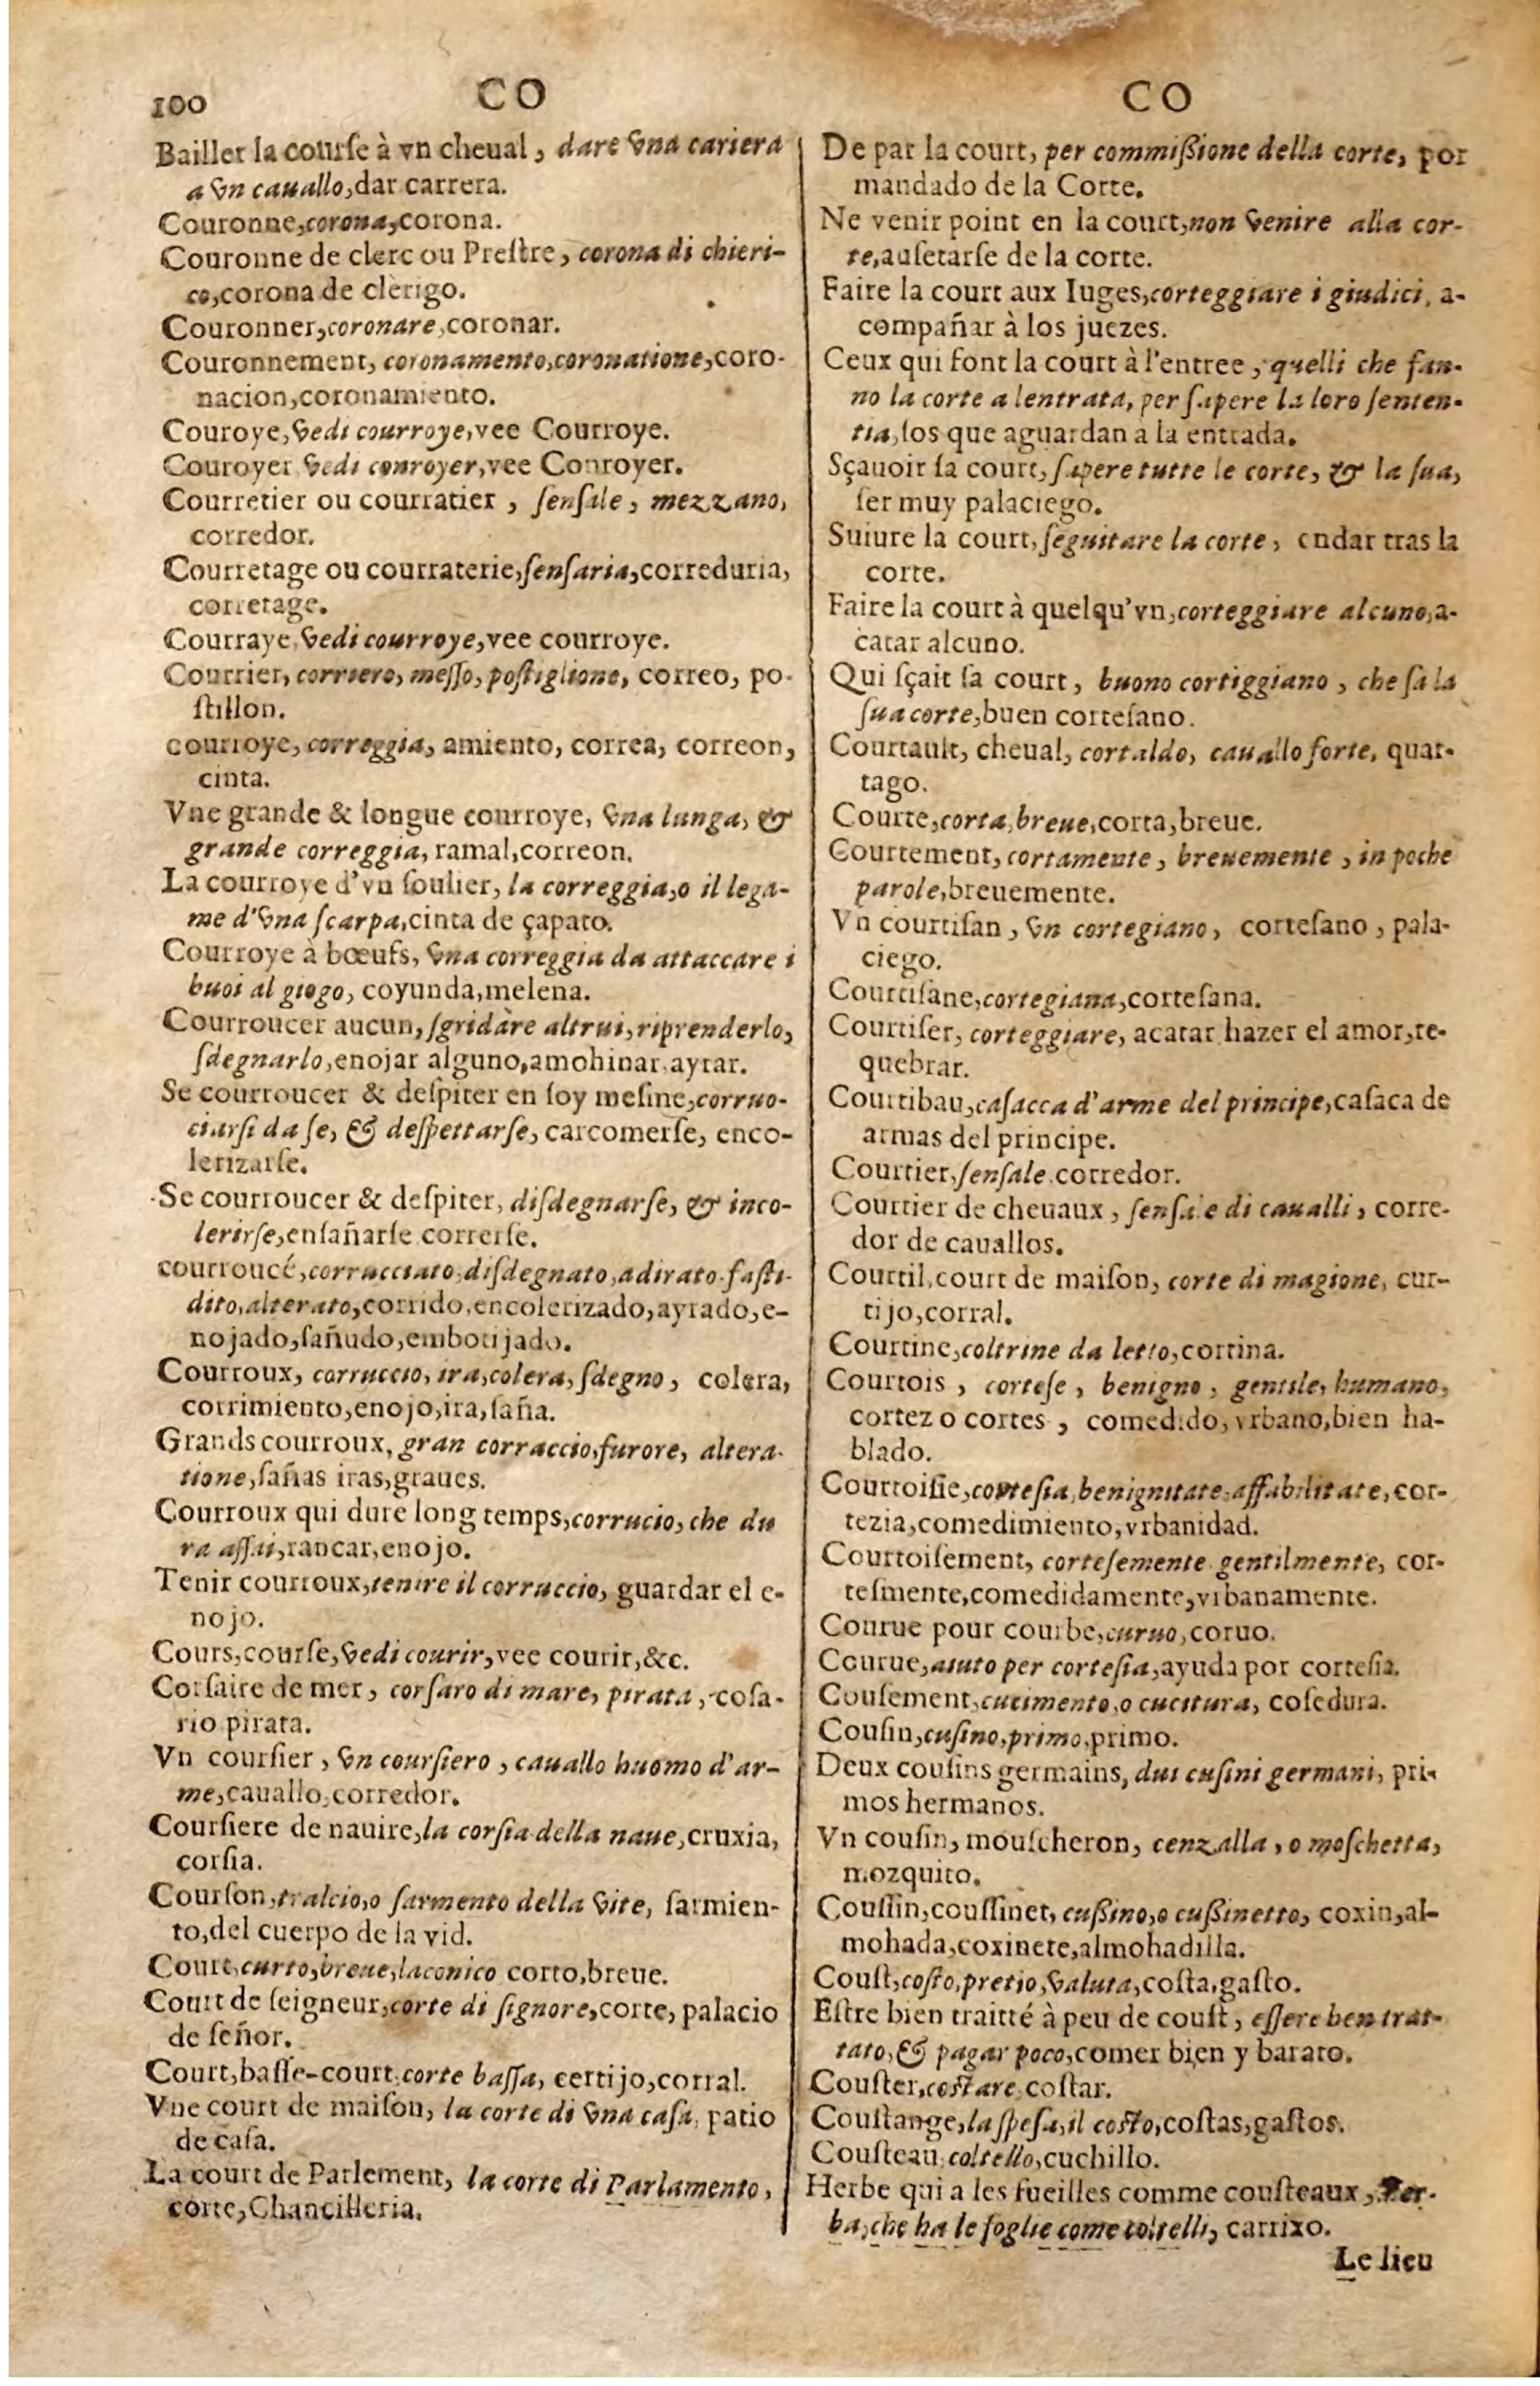 100
CO
CO
Bailler la courſe à vn cheual, dare vna cariera
a vn cauallo,dar carrera.
Couronne,corona,corona.
Couronne de clerc ou Preſtre, corona di chieri-
co,corona de clerigo.
Couronner,coronare,coronar.
Couronnement, coronamento,coronatione,coro-
nacion,coronamiento.
Couroye,vedi courroye,vee Courroye.
Couroyer vedi conroyer,vee Conroyer.
Courretier ou courratier, ſenſale, mezzano,
corredor.
Courretage ou courraterie,ſenſaria,correduria,
corretage.
Courraye,vedi courroye,vee courroye.
Courrier, corriero, meſſo, poſtiglione, correo, po-
ſtillon.
courroye, correggia, amiento, correa, correon,
cinta.
Vne grande & longue courroye, vna lunga, &
grande correggia, ramal,correon.
La courroye d'vn ſoulier, la correggia,o il lega-
me d'vna ſcarpa,cinta de çapato.
Courroye à bœufs, vna correggia da attaccare i
buoi al giogo, coyunda,melena.
Courroucer aucun,ſgridare altrui,riprenderlo,
ſdegnarlo,enojar alguno,amohinar,ayrar.
Se courroucer & deſpiter en ſoy meſme,corruo-
ciarſi da ſe, & deſpettarſe, carcomerſe, enco-
lerizarſe.
Se courroucer & deſpiter, diſdegnarſe, & inco-
lerirſe,enſañarſe correrſe.
courroucé,corrucciato,diſdegnato,adirato.faſti-
dito,alterato,corrido,encolerizado,ayrado,e-
nojado,ſañudo,embotijado.
Courroux, corruccio, ira,colera,ſdegno, colera,
corrimiento,enojo,ira,ſaña.
Grands courroux, gran corraccio,furore, altera-
tione,ſañas iras,graues.
Courroux qui dure long temps,corrucio,che du
ra aſſai,rancar,enojo.
Tenir courroux,tenire il corruccio, guardar el e-
nojo.
Cours,courſe,vedi courir,vee courir,&c.
Corſaire de mer, corſaro di mare, pirata, coſa-
rio pirata.
Vn courſier, vn courſiero, cauallo huomo d'ar-
me,cauallo,corredor.
Courſiere de nauire,la corſia della naue,cruxia,
corſia.
Courſon,tralcio,o ſarmento della vite, ſarmien-
to,del cuerpo de la vid.
Court,curto,breue,laconico corto,breue.
Court de ſeigneur,corte di ſignore,corte, palacio
de ſeñor.
Court,baſſe-court,corte baſſa, certijo,corral.
Vne court de maiſon, la corte di vna caſa, patio
de caſa.
La court de Parlement, la corte di Parlamento,
corte,Chancilleria.
De par la court, per commißione della corte, por
mandado de la Corte.
Ne venir point en la court,non venire alla cor-
te,auſetarſe de la corte.
Faire la court aux Iuges,corteggiare i giudici, a-
compañar à los juezes.
Ceux qui font la court à l'entree, quelli che fan-
no la corte a lentrata, per ſapere la loro ſenten-
tia,los que aguardan a la entrada.
Sçauoir ſa court, ſapere tutte le corte, & la ſua,
ſer muy palaciego.
Suiure la court, ſeguitare la corte, endar tras la
corte.
Faire la court à quelqu'vn,corteggiare alcuno,a-
catar alcuno.
Qui ſçait ſa court, buono cortiggiano, che ſa la
ſua corte,buen corteſano.
Courtault, cheual, cortaldo, cauallo forte, quar-
tago.
Courte,corta,breue,corta,breue.
Courtement, cortamente, breuemente, in poche
parole,breuemente.
Vn courtiſan, vn cortegiano, corteſano, pala-
ciego.
Courtiſane,cortegiana,corteſana.
Courtiſer, corteggiare, acatar hazer el amor,re-
quebrar.
Courtibau,caſacca d'arme del principe,caſaca de
armas del principe.
Courtier,ſenſale corredor.
Courtier de cheuaux, ſenſale di caualli, corre-
dor de cauallos.
Courtil,court de maiſon, corte di magione, cur-
tijo,corral.
Courtine,coltrine da letto,cortina.
Courtois, corteſe, benigno, gentile, humano,
cortez o cortes, comedido, vrbano,bien ha-
blado.
Courtoiſie,corteſia,benignitate,affabilitate,cor-
tezia,comedimiento,vrbanidad.
Courtoiſement, corteſemente gentilmente, cor-
teſmente,comedidamente,vrbanamente.
Courue pour courbe,curuo,coruo.
Courue,aiuto per corteſia,ayuda por corteſia.
Couſement,cucimento,o cucitura, coſedura.
Couſin,cuſino,primo,primo.
Deux couſins germains, dui cuſini germani, pri-
mos hermanos.
Vn couſin, mouſcheron, cenzalla, o moſchetta,
mozquito.
Couſſin,couſſinet, cußino,o cußinetto, coxin,al-
mohada,coxinete,almohadilla.
Couſt,coſto,pretio,valuta,coſta,gaſto.
Eſtre bien traitté à peu de couſt, eſſere ben trat-
tato,& pagar poco,comer bien y barato.
Couſter,coſtare coſtar.
Couſtange,la ſpeſa,il coſto,coſtas,gaſtos.
Couſteau,coltello,cuchillo.
Herbe qui a les fueilles comme couſteaux, Her-
ba,che ha le foglie come coltelli, carrixo.
Le lieu